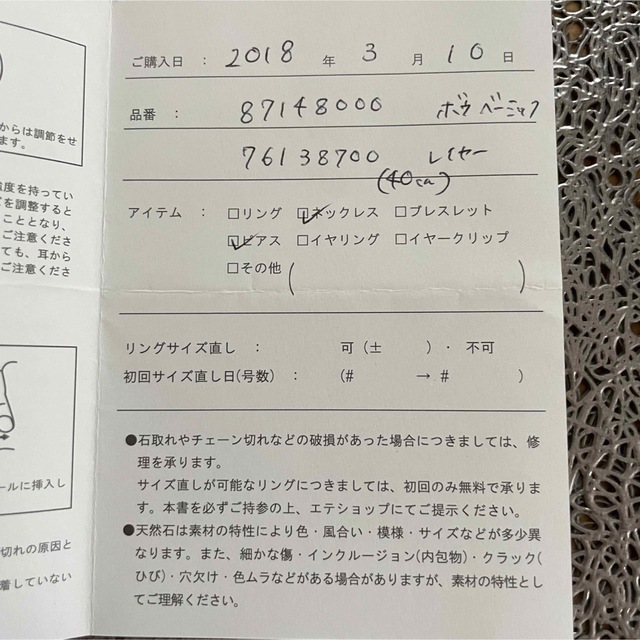 ご購入日 : 2018 年 3 月 10 日
品番 : 87148000 ボウ ベーシック
76138700 レイヤー
(40cm)
アイテム : □リング □ネックレス □ブレスレット
□ピアス □イヤリング □イヤークリップ
□その他( )
リングサイズ直し : 可(± )・ 不可
初回サイズ直し日(号数) : (# → # )
●石取れやチェーン切れなどの破損があった場合につきましては、修
理を承ります。
サイズ直しが可能なリングにつきましては、初回のみ無料で承りま
す。本書を必ずご持参の上、エテショップにてご提示ください。
●天然石は素材の特性により色・風合い・模様・サイズなどが多少異
なります。また、細かな傷・インクルージョン(内包物)・クラック(
ひび)・穴欠け・色ムラなどがある場合がありますが、素材の特性とし
てご理解ください。
からは調節をせ
ます。
強度を持ってい
を調整すると
こととなり、
ご注意くださ
ても、耳から
ご注意くださ
ールに挿入し
切れの原因と
着していない